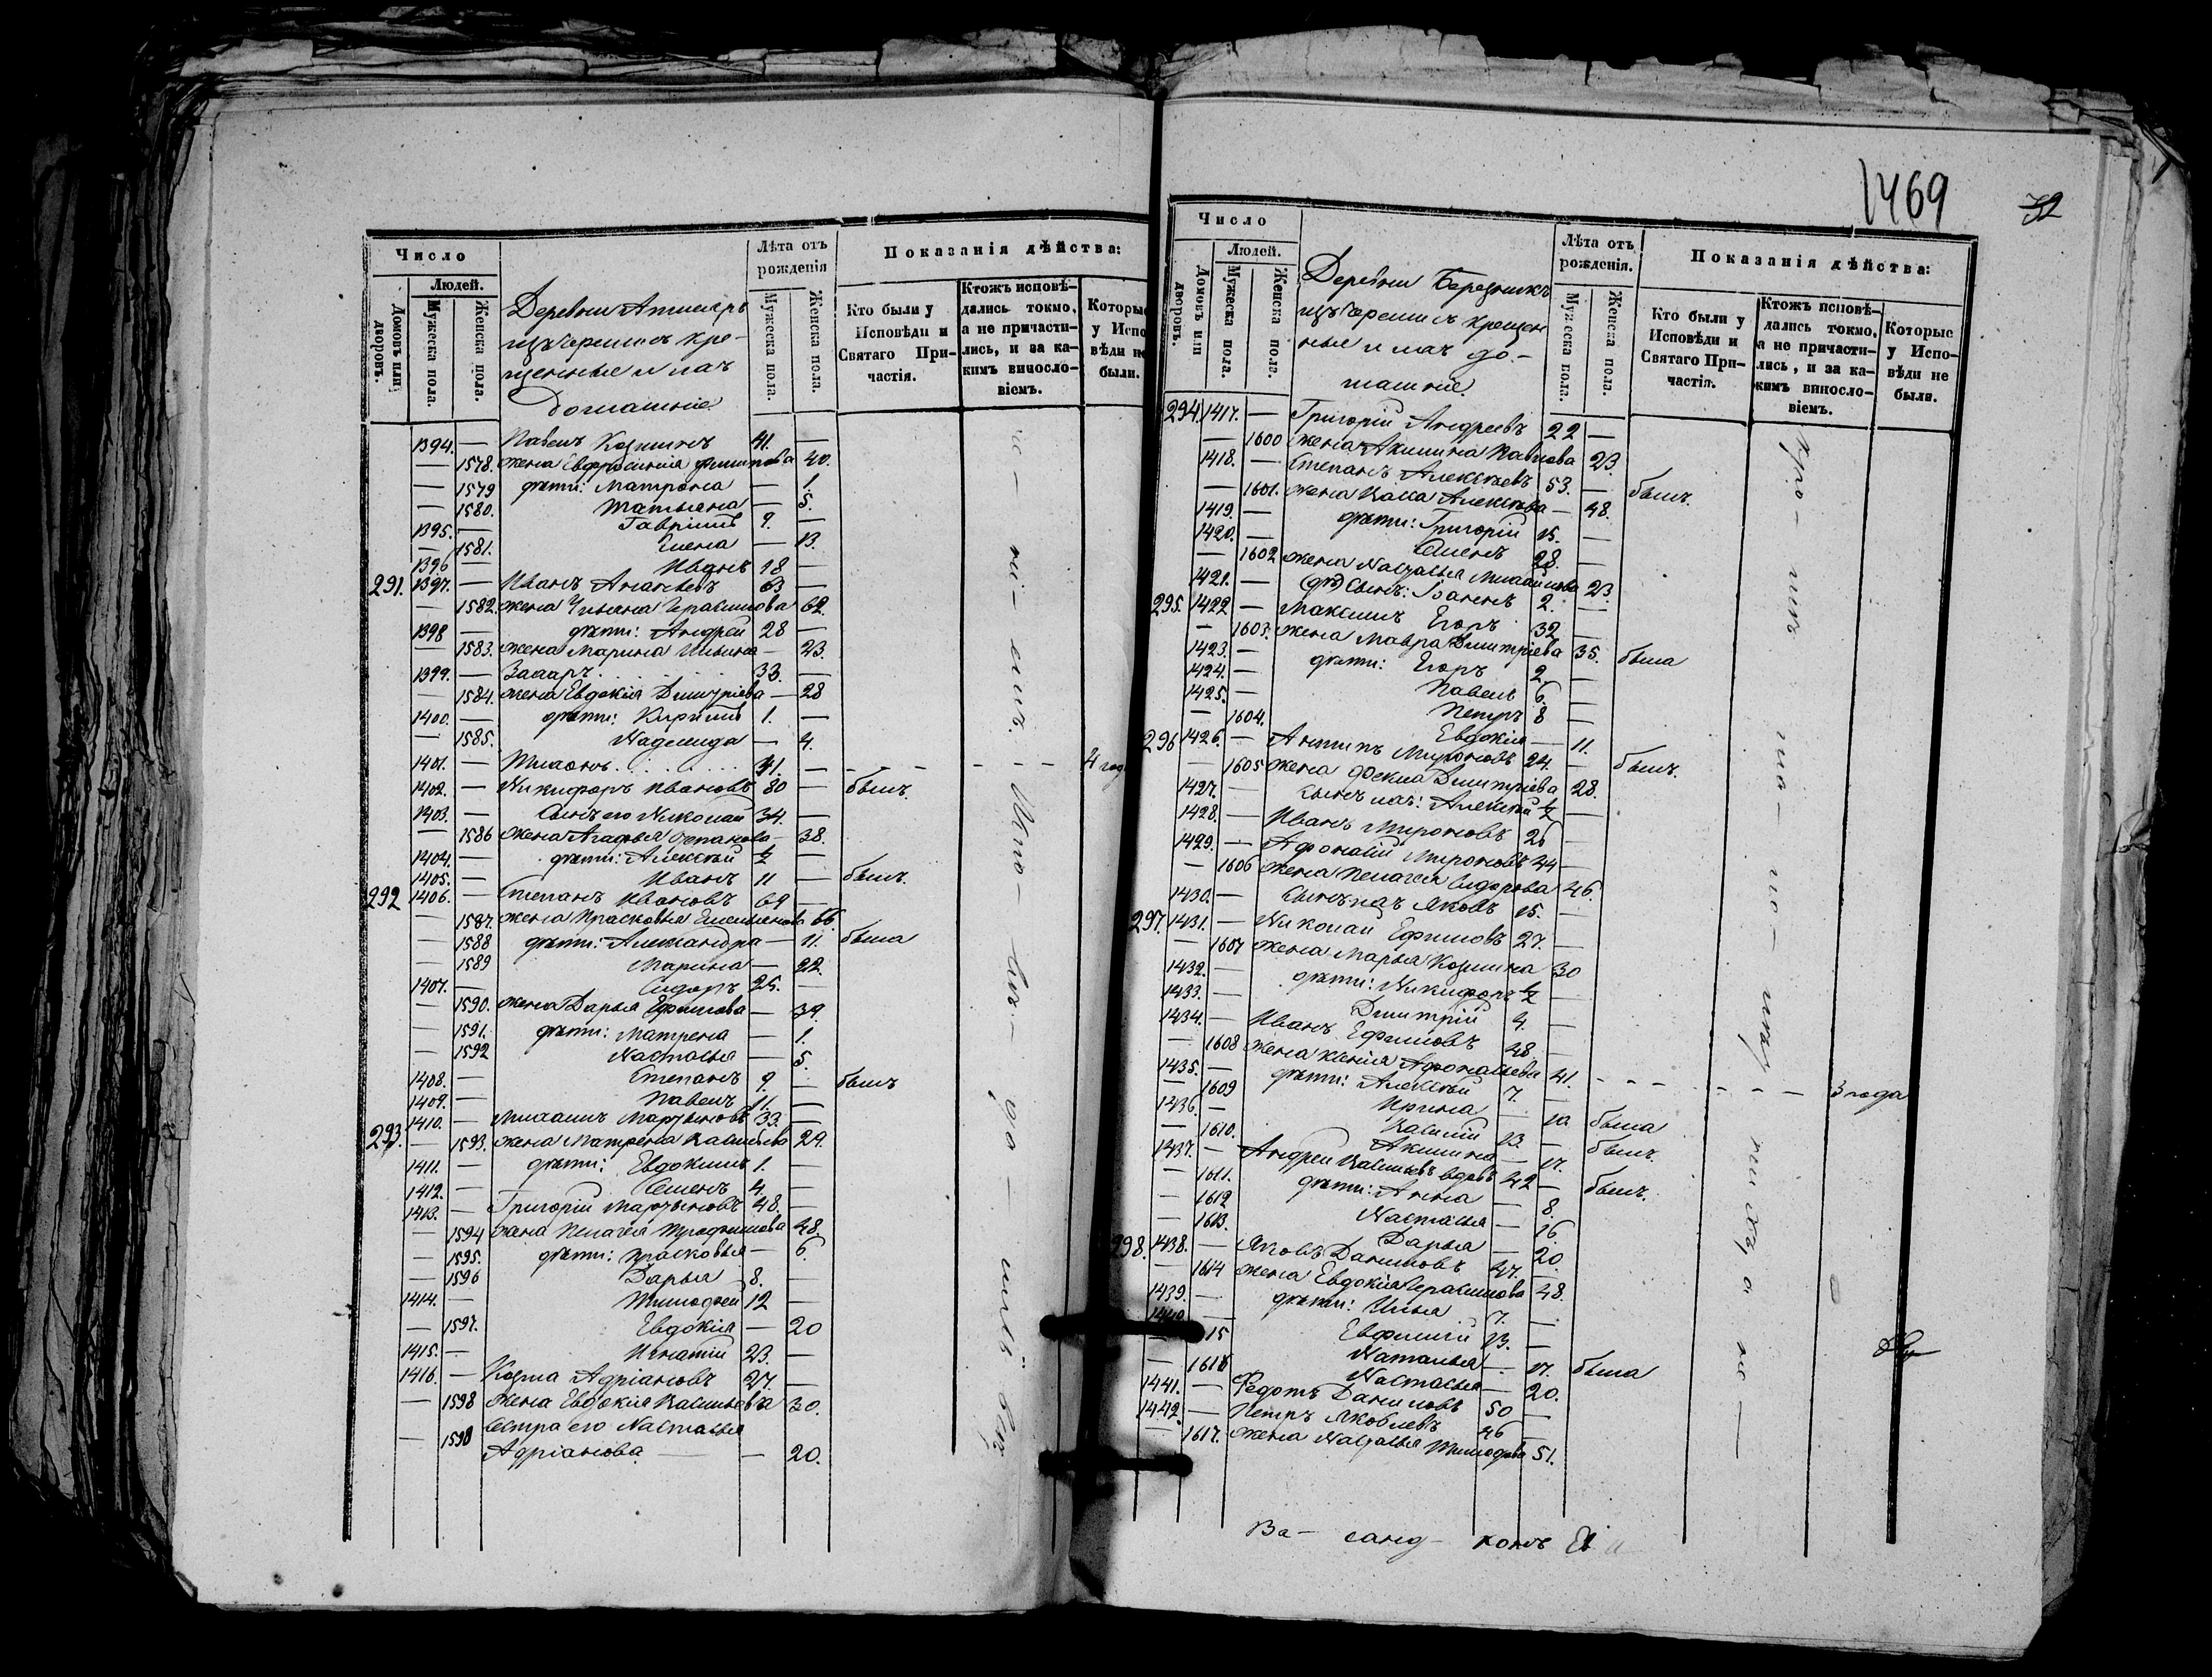 Число
Людей.
Домовъ или дворовъ.
Мужеска пола.
Женска пола.
Деревни
изъ Черемисъ кре-
щенные и ихъ
домашніе
Лѣта отъ рожденія
Мужеска пола.
Женска пола.
Показанія дѣйства:
Кто были у Исповѣди и Святаго При-частія.
Ктожъ исповѣ-дались токмо, а не причасти-лись, и за ка-кимъ винословіемъ.
Которые у Испо-вѣди не были.
1394. — Павелъ Козминъ 41. —
— 1578. жена Евфросинія Филипова 40.
— 1579 дѣти: Матрона — 1.
— 1580. Татьяна — 5.
1395. — Гавріилъ 9. —
— 1581. Елена — 13.
1396 — Иванъ 18 —
291. 1397. — Иванъ Ананьевъ 63 —
— 1582. жена Ульяна Герасимова 62.
1398 — дѣти: Андрей 28 —
— 1583. жена Марина Ильина — 23.
1399. — Захаръ 33. —
— 1584. жена Евдокія Димитріева — 28
1400. — дѣти: Кирилъ 1. —
— 1585. Надежида — 4.
1401. — 4 год
1402. — Никифоръ Ивановъ 80 — былъ.
1403. — Сынъ его Николай 34. —
— 1586 жена Агафья Степанова — 38.
1404. — дѣти: Алексѣй ½ —
1405. — Иванъ 11 — былъ.
292 1406. — Степанъ Ивановъ 69 —
— 1587. жена Прасковья Емельянова 66.
— 1588 дѣти: Александра — 11. была
— 1589 Марина — 22.
1407. — Сидоръ 25. —
— 1590. жена Дарья Ефимова — 39.
— 1591. дѣти: Матрена — 1.
— 1592 Настасья — 5.
1408. — Степанъ 9. — былъ
1409. — Павелъ 11. —
293. 1410. — Михаилъ Мартыновъ 33. —
— 1593. жена Матрена Васильева 29.
1411. — дѣти: Евдокимъ 1. —
1412. — Семенъ 4. —
1413. — Григорій Мартыновъ 48. —
— 1594 жена Пелагея Трофимова 48.
— 1595. дѣти: Прасковья — 6.
— 1596 Дарья 8. —
1414. — Тимофей 12 —
— 1597. Евдокія — 20
1415. — Игнатій 23. —
1416. — Козма Адріановъ 27. —
— 1598 жена Евдокія Васильева 30.
— 1598 Сестра его Настасья
Адріанова — — 20.
1469
Число
Людей.
Домовъ или дворовъ.
Мужеска пола.
Женска пола.
Деревни Березникъ
изъ Черемисъ крещен
ные и ихъ до-
машніе.
Лѣта отъ рожденія.
Мужеска пола.
Женска пола.
Показанія дѣйства:
Кто были у Исповѣди и Святаго При-частія.
Ктожъ исповѣ-дались токмо, а не причасти-лись, и за ка-кимъ винословіемъ.
Которые у Испо-вѣди не были.
294. 1417. — Григорій Андреевъ 22 —
— 1600 жена Акилина Павлова 23.
1418. — Степанъ Алексѣевъ 53. — былъ.
— 1601. жена Васса Алексѣева — 48.
1419. — дѣти: Григорій 15. —
1420. — Семенъ 28. —
— 1602 жена Настасья Михайлова 23.
1421. — Сынъ: Іоаннъ 2. —
295. 1422 — Максимъ Егоръ 32 —
— 1603. жена Мавра Димитріева 35. была
1423. — дѣти: Егоръ 2. —
1424. — Павелъ 6. —
1425. — Петръ 8 —
— 1604. Евдокія — 11.
296 1426. — Антипъ Мироновъ 24. — былъ.
— 1605 жена Фекла Димитріева 28.
1427. — сынъ ихъ: Алексѣй ½ —
1428. — Иванъ Мироновъ 26 —
1429. — Афонасій Мироновъ 44 —
— 1606 жена Пелагея Сидорова 46.
1430. — Сынъ ихъ Яковъ 15. —
297. 1431. — Николай Ефимовъ 27. —
— 1607 жена Марья Козмина 30
1432. — дѣти: Никифоръ ½ —
1433. — Димитрій 4. —
1434. — Иванъ Ефимовъ 48. —
— 1608 жена Ксенія Афонасьева 41. 3 года
1435. — дѣти: Алексѣй 7. —
— 1609 Ирина — 10 была
1436 — Василій 13. — былъ.
— 1610. Акилина — 17.
1437. — Андрей Васильевъ вдовъ 42 — былъ.
— 1611. дѣти: Анна — 8.
— 1612 Настасья — 16.
— 1613. Дарья — 20.
298. 1438. — Яковъ Даниловъ 47. —
— 1614 жена Евдокія Герасимова 48.
1439. — дѣти: Илья 7. —
1440 — Евфимій 13. —
15 Наталья — 17. была
— 1616 Настасья — 20.
1441. — Федотъ Даниловъ 50 —
1442. — Петръ Яковлевъ 46 —
— 1617. жена Настасья 51.